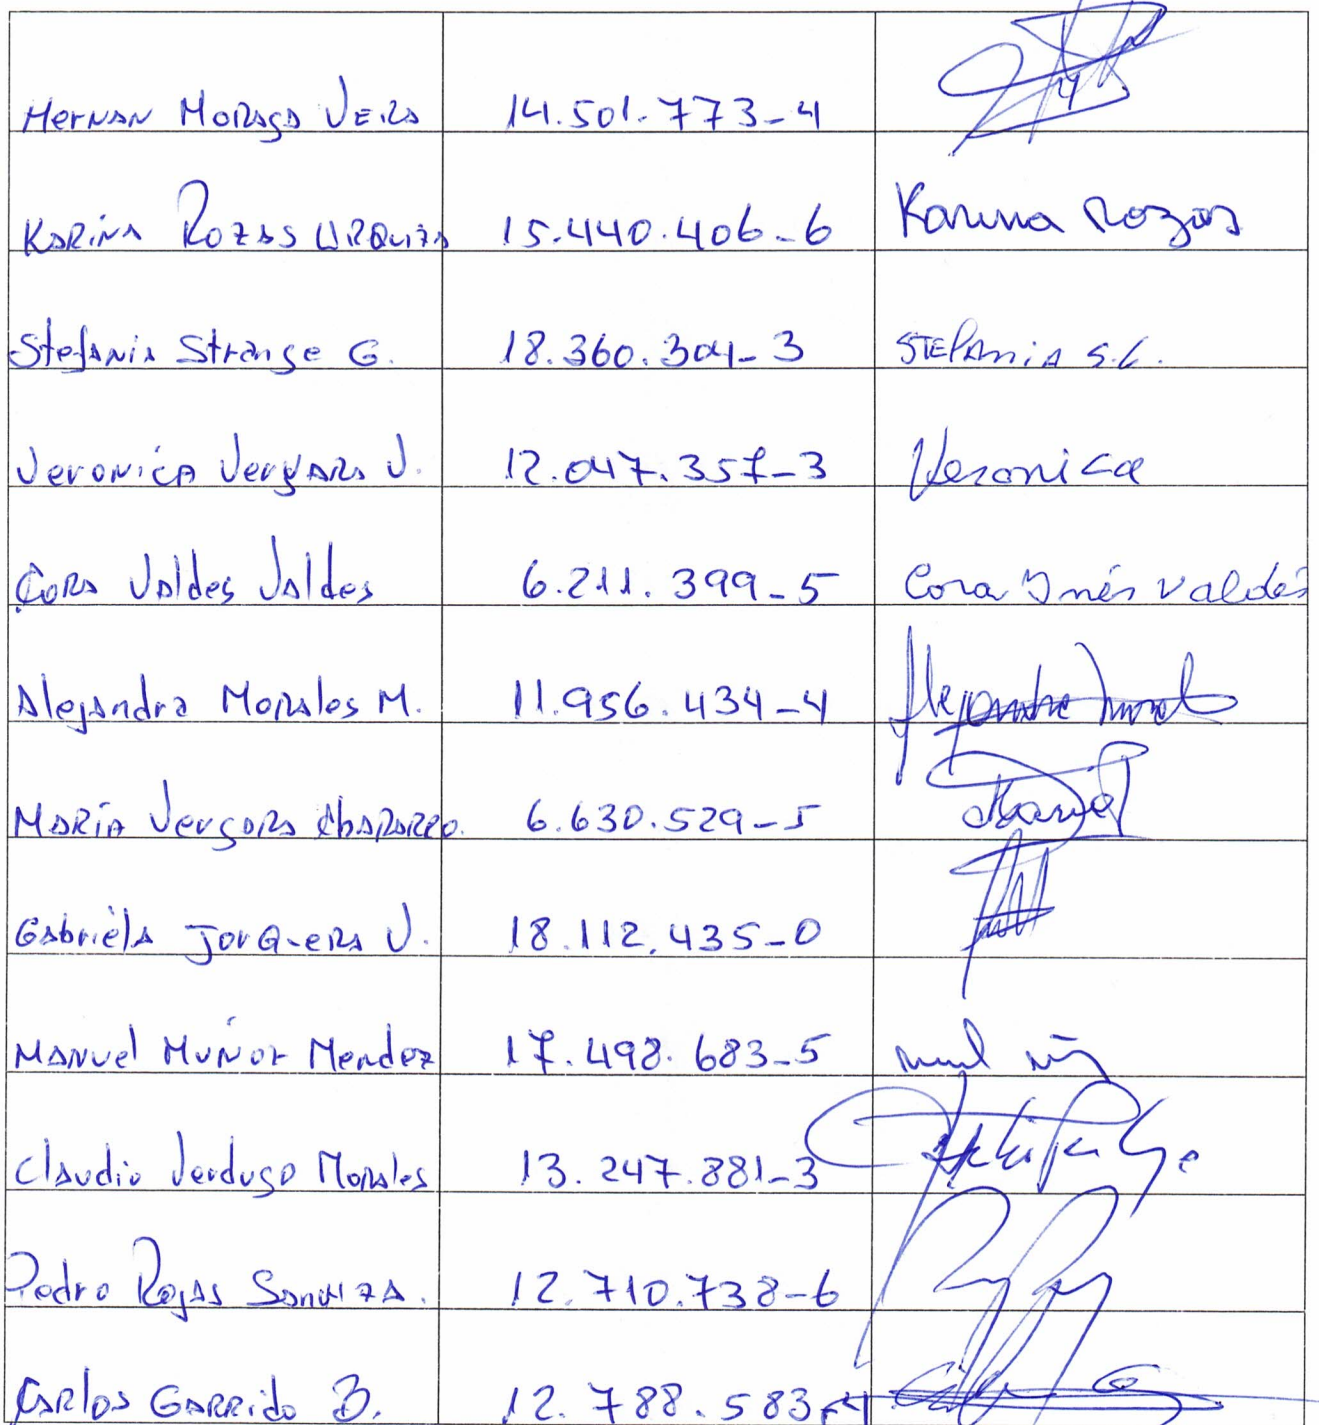 Hernan Moraga Vera 14.501.773-4
Karina Rozas Urquiza 15.440.406-6 Karina Rozas
Stefania Strange G. 18.360.304-3 STEFANIA S.G.
Veronica Vergara V. 12.047.357-3 Veronica
Cora Valdes Valdes 6.211.399-5 Cora Inés Valdés
Alejandra Morales M. 11.956.434-4 Alejandra Moral
María Vergara Chaparro. 6.630.529-5 Maria
Gabriela Jorquera V. 18.112.435-0
Manuel Muñoz Mendez 17.498.683-5
Claudio Verdugo Morales 13.247.881-3
Pedro Rojas 12.710.738-6
Carlos Garrido B. 12.788.583-4